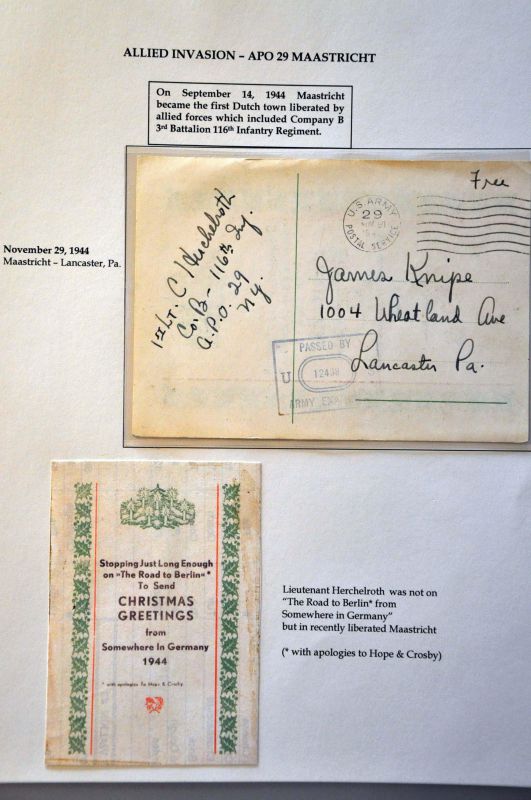 ALLIED INVASION – APO 29 MAASTRICHT
On September 14, 1944 Maastricht
became the first Dutch town liberated by
allied forces which included Company B
3rd Battalion 116th Infantry Regiment.
November 29, 1944
Maastricht – Lancaster, Pa.
Free
1st Lt. C Herchelroth
Co. B – 116th Inf.
A.P.O. 29
N.Y.
U.S. ARMY
29
POSTAL SERVICE
James Knipe
1004 Wheatland Ave
Lancaster Pa.
PASSED BY
U
ARMY EXA
Stopping Just Long Enough
on »The Road to Berlin«*
To Send
CHRISTMAS
GREETINGS
from
Somewhere in Germany
1944
* with apologies To Hope & Crosby
Lieutenant Herchelroth was not on
"The Road to Berlin* from
Somewhere in Germany"
but in recently liberated Maastricht
(* with apologies to Hope & Crosby)